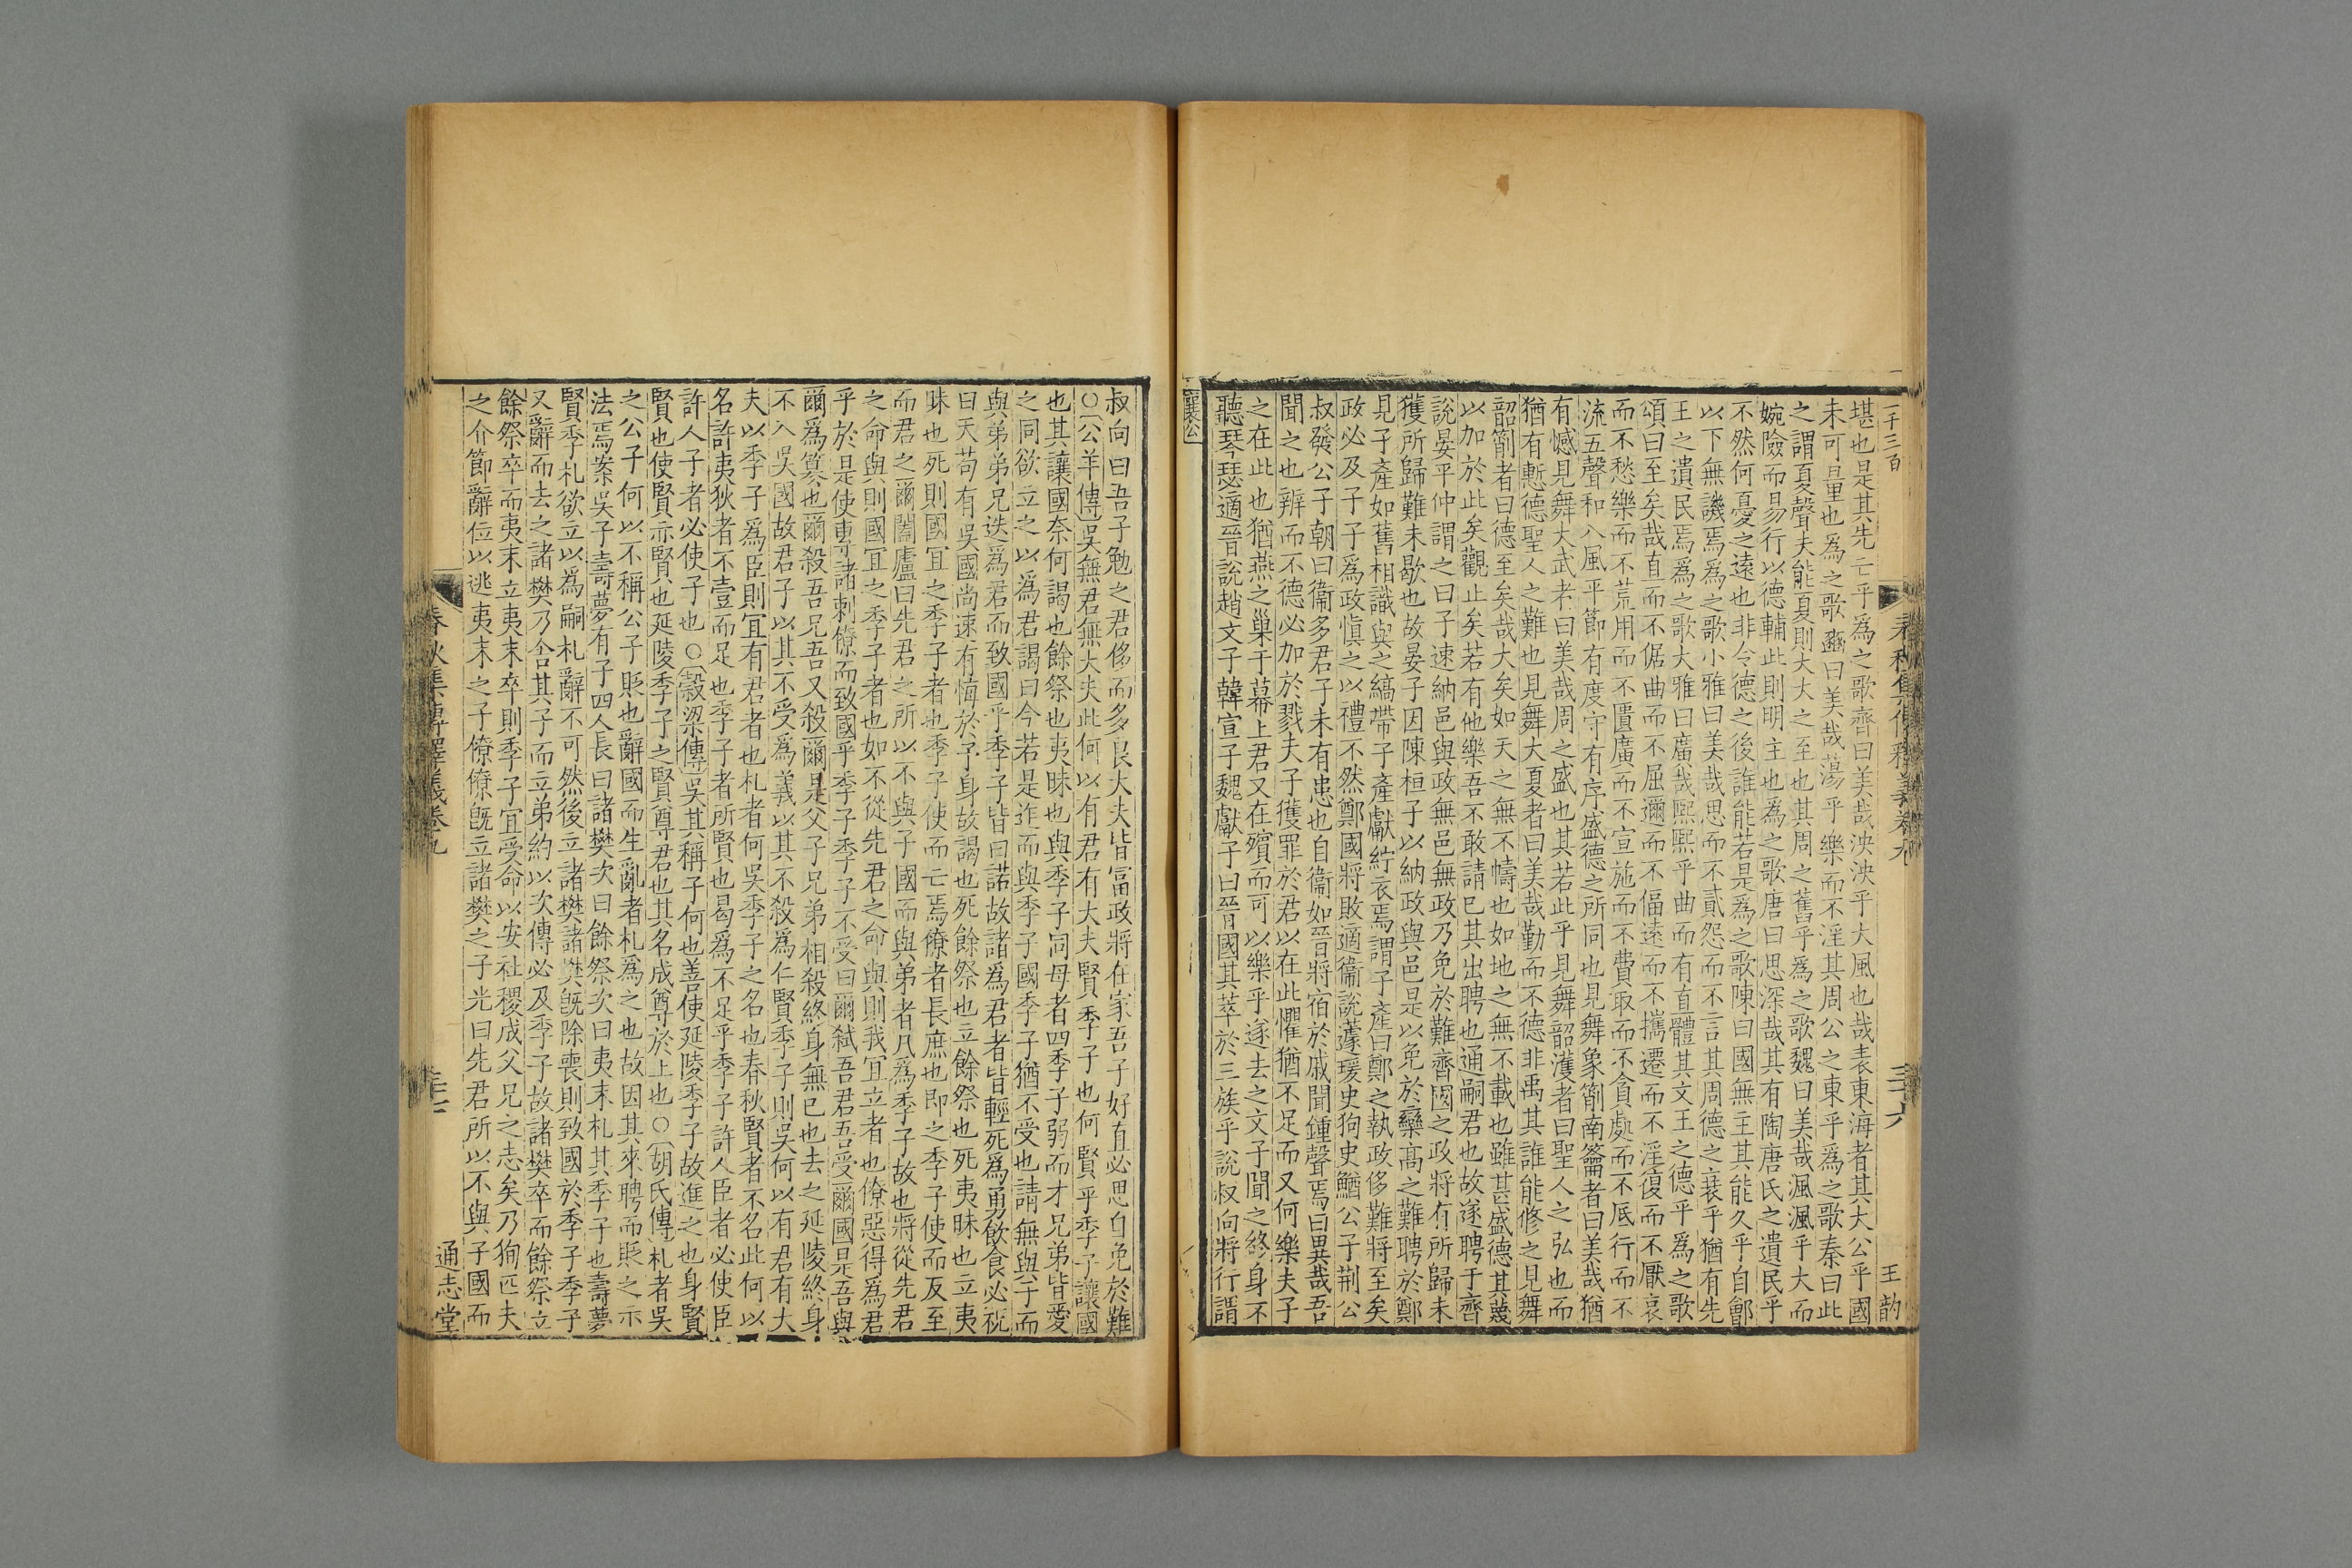 一千三百
春秋集傳釋義卷九
三十六
王 韵
堪也是其先亡乎爲之歌齊曰美哉泱泱乎大風也哉表東海者其大公乎國
未可量也爲之歌豳曰美哉蕩乎樂而不淫其周公之東乎爲之歌秦曰此
之謂夏聲夫能夏則大大之至也其周之舊乎爲之歌魏曰美哉渢渢乎大而
婉險而易行以德輔此則明主也爲之歌唐曰思深哉其有陶唐氏之遺民乎
不然何憂之遠也非令德之後誰能若是爲之歌陳曰國無主其能久乎自鄶
以下無譏焉爲之歌小雅曰美哉思而不貳怨而不言其周德之衰乎猶有先
王之遺民焉爲之歌大雅曰廣哉熙熙乎曲而有直體其文王之德乎爲之歌
頌曰至矣哉直而不倨曲而不屈邇而不偪遠而不攜遷而不淫復而不厭哀
而不愁樂而不荒用而不匱廣而不宣施而不費取而不貪處而不底行而不
流五聲和八風平節有度守有序盛德之所同也見舞象箾南籥者曰美哉猶
有憾見舞大武者曰美哉周之盛也其若此乎見舞韶濩者曰聖人之弘也而
猶有慙德聖人之難也見舞大夏者曰美哉勤而不德非禹其誰能修之見舞
韶箾者曰德至矣哉大矣如天之無不幬也如地之無不載也雖甚盛德其蔑
以加於此矣觀止矣若有他樂吾不敢請已其出聘也通嗣君也故遂聘于齊
說晏平仲謂之曰子速納邑與政無邑無政乃免於難齊國之政將有所歸未
獲所歸難未歇也故晏子因陳桓子以納政與邑是以免於欒高之難聘於鄭
見子產如舊相識與之縞帶子產獻紵衣焉謂子產曰鄭之執政侈難將至矣
政必及子子爲政慎之以禮不然鄭國將敗適衞說蘧瑗史狗史鰌公子荆公
叔發公子朝曰衞多君子未有患也自衞如晉將宿於戚聞鍾聲焉曰異哉吾
聞之也辨而不德必加於戮夫子獲罪於君以在此懼猶不足而又何樂夫子
之在此也猶燕之巢于幕上君又在殯而可以樂乎遂去之文子聞之終身不
聽琴瑟適晉說趙文子韓宣子魏獻子曰晉國其萃於三族乎說叔向將行謂
襄公
叔向曰吾子勉之君侈而多良大夫皆富政將在家吾子好直必思自免於難
○公羊傳吳無君無大夫此何以有君有大夫賢季子也何賢乎季子讓國
也其讓國奈何謁也餘祭也夷昧也與季子同母者四季子弱而才兄弟皆愛
之同欲立之以爲君謁曰今若是迮而與季子國季子猶不受也請無與子而
與弟弟兄迭爲君而致國乎季子皆曰諾故諸爲君者皆輕死爲勇飲食必祝
曰天苟有吳國尚速有悔於予身故謁也死餘祭也立餘祭也死夷昧也立夷
昧也死則國宜之季子者也季子使而亡焉僚者長庶也即之季子使而反至
而君之爾闔廬曰先君之所以不與子國而與弟者凡爲季子故也將從先君
之命與則國宜之季子者也如不從先君之命與則我宜立者也僚惡得爲君
乎於是使專諸刺僚而致國乎季子季子不受曰爾弒吾君吾受爾國是吾與
爾爲篡也爾殺吾兄吾又殺爾是父子兄弟相殺終身無已也去之延陵終身
不入吳國故君子以其不受爲義以其不殺爲仁賢季子則吳何以有君有大
夫以季子爲臣則宜有君者也札者何吳季子之名也春秋賢者不名此何以
名許夷狄者不壹而足也季子者所賢也曷爲不足乎季子許人臣者必使臣
許人子者必使子也○穀梁傳吳其稱子何也善使延陵季子故進之也身賢
賢也使賢亦賢也延陵季子之賢尊君也其名成尊於上也○胡氏傳札者吳
之公子何以不稱公子貶也辭國而生亂者札爲之也故因其來聘而貶之示
法焉案吳子壽夢有子四人長曰諸樊次曰餘祭次曰夷末札其季子也壽夢
賢季札欲立以爲嗣札辭不可然後立諸樊諸樊旣除喪則致國於季子季子
又辭而去之諸樊乃舍其子而立弟約以次傳必及季子故諸樊卒而餘祭立
餘祭卒而夷末立夷末卒則季子宜受命以安社稷成父兄之志矣乃狥匹夫
之介節辭位以逃夷末之子僚僚旣立諸樊之子光曰先君所以不與子國而
春秋集傳釋義卷九
通志堂